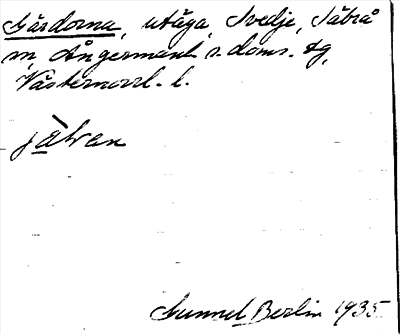 Gårdorna, utäga, Svedje, Säbrå
sn, Ångermanl. s. doms. tg,
Västernorrl. l.
jàlvan
Gunnel Berlin 1935